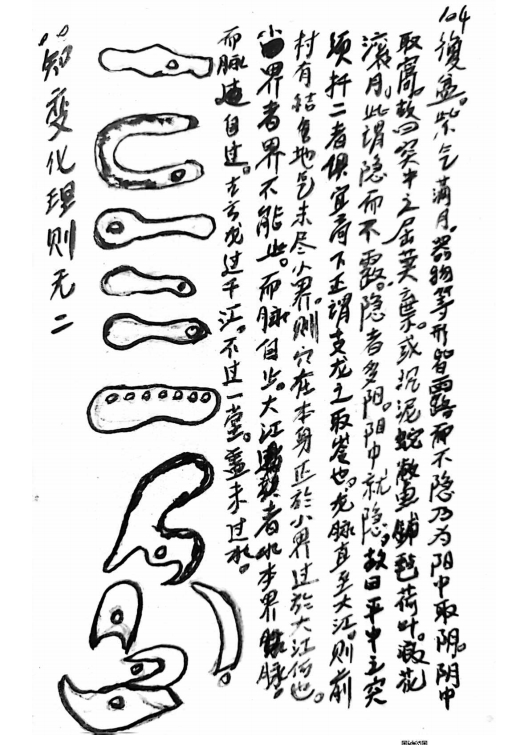 104
覆盆。紫气满月。器物等形皆面露而不隐乃为阳中取阴。阴中
取窝。故曰突中之屈莫弃。或坭泥蛇敝鱼铺毡荷叶。浪花
滚月。此谓隐而不露。隐者多阴。阳中就隐。故曰平中之突
须扦二者俱宜高下正谓支龙之取巷也。龙脉直至大江。则前
村有结自地气未尽小界。则穴在本身止於小界过於大江何也。
小界者界不能止。而脉自止。大江者水本界脉。
而脉遁自过。古云龙过千江。不过一堂。盖未过水。
知变化理则无二